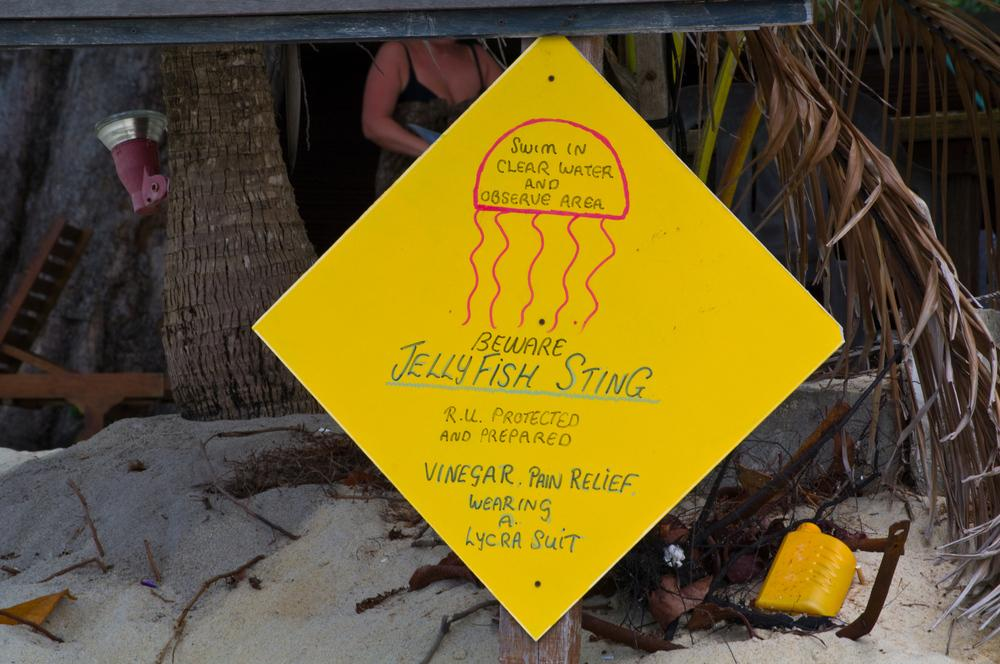 SWIM IN
CLEAR WATER
AND
OBSERVE AREA
BEWARE
JELLYFISH STING
R.U. PROTECTED
AND PREPARED
VINEGAR. PAIN RELIEF.
WEARING
A.
LYCRA SUIT